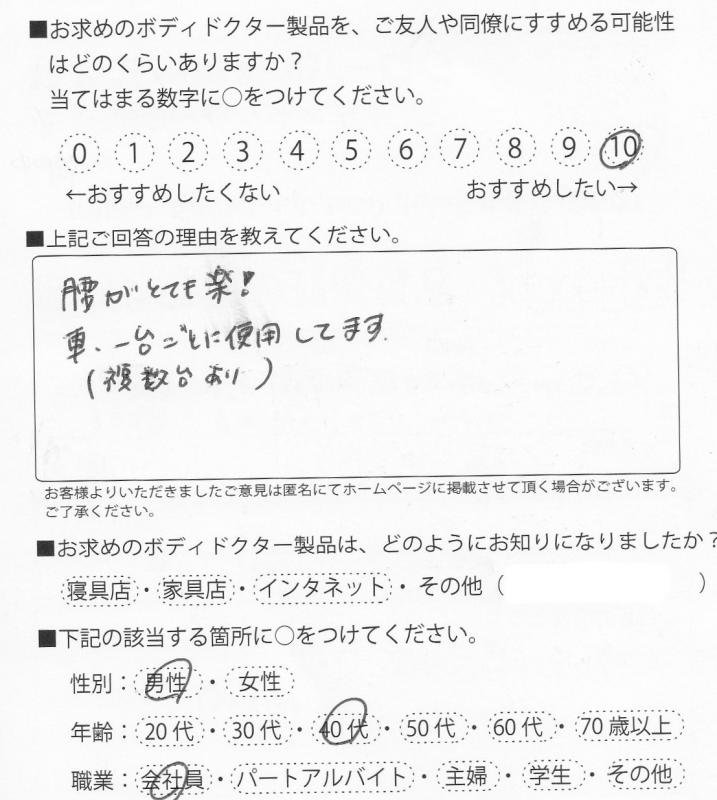 ■お求めのボディドクター製品を、ご友人や同僚にすすめる可能性
はどのくらいありますか？
当てはまる数字に○をつけてください。
0 1 2 3 4 5 6 7 8 9 10
←おすすめしたくない おすすめしたい→
■上記ご回答の理由を教えてください。
腰がとても楽!
車、一台ごとに使用してます.
(複数台あり)
お客様よりいただきましたご意見は匿名にてホームページに掲載させて頂く場合がございます。
ご了承ください。
■お求めのボディドクター製品は、どのようにお知りになりましたか？
寝具店・家具店・インタネット・その他（ ）
■下記の該当する箇所に○をつけてください。
性別：男性・女性
年齢：20代・30代・40代・50代・60代・70歳以上
職業：会社員・パートアルバイト・主婦・学生・その他